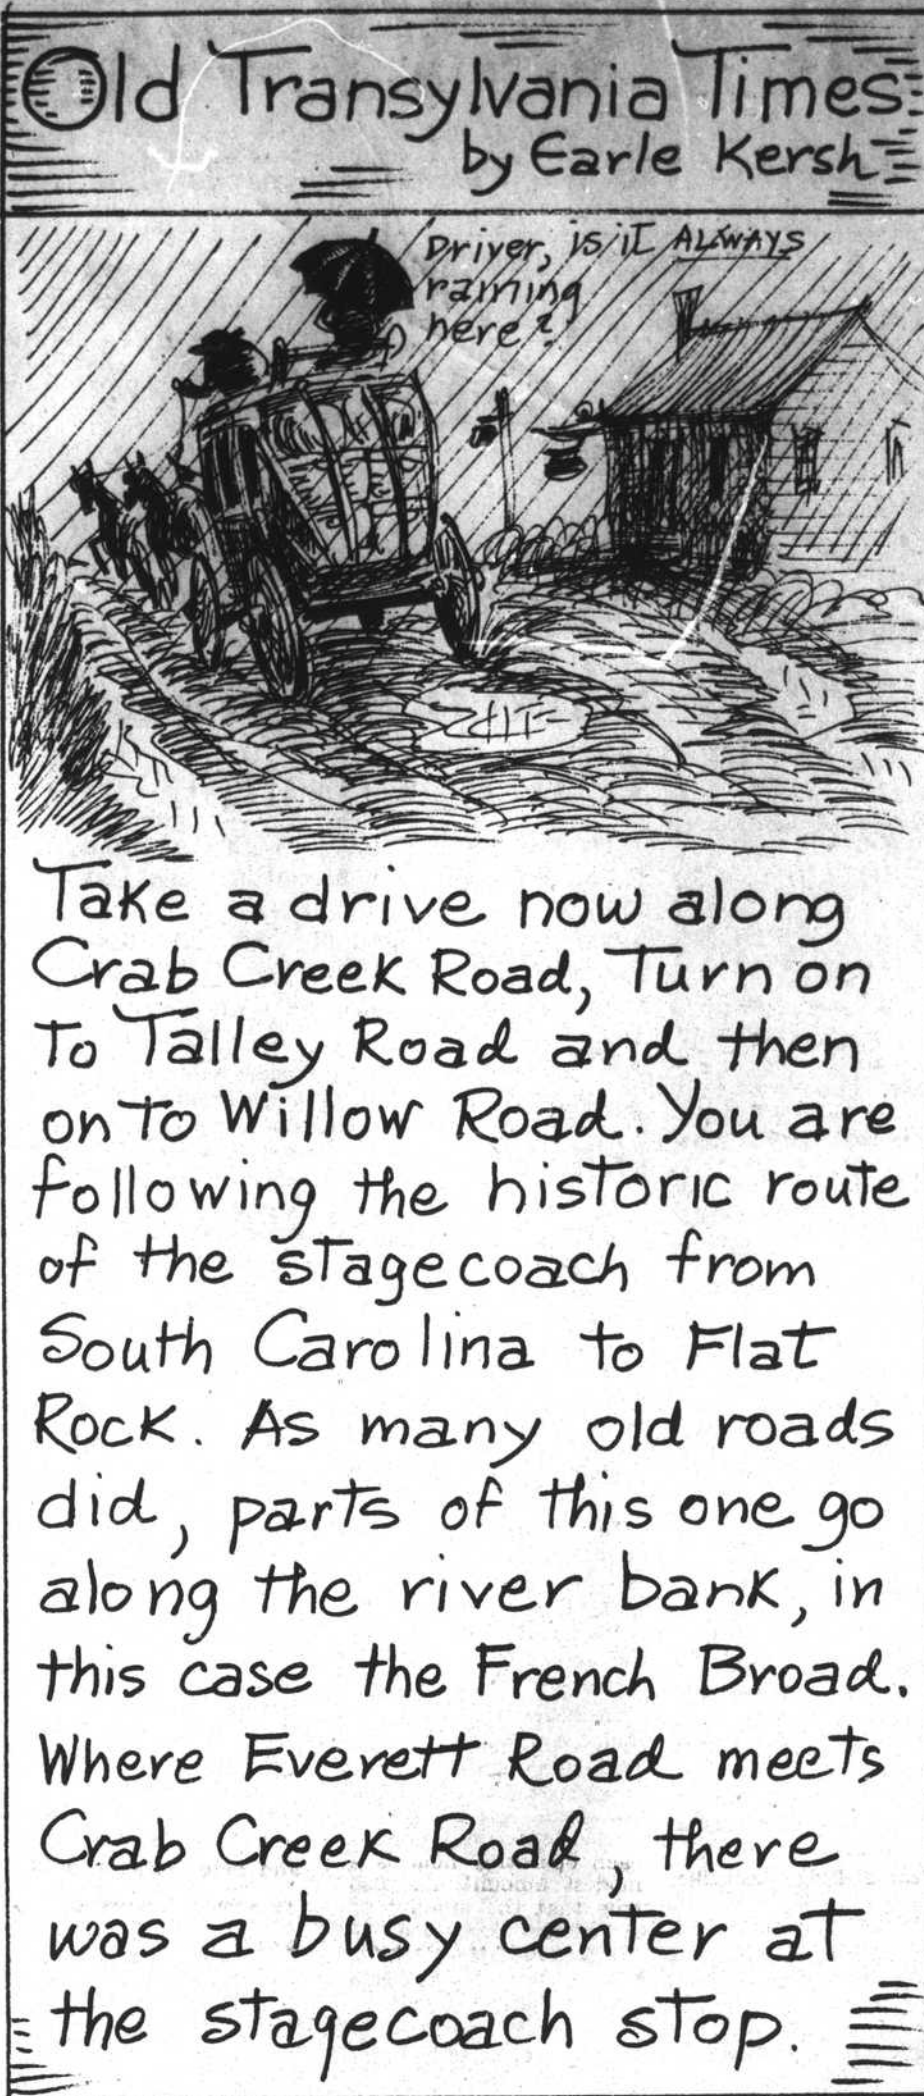 Old Transylvania Times
by Earle Kersh
Driver, is it ALWAYS
raining
here?
Take a drive now along
Crab Creek Road, Turn on
To Talley Road and then
onto Willow Road. You are
following the historic route
of the stagecoach from
South Carolina to Flat
Rock. As many old roads
did, parts of this one go
along the river bank, in
this case the French Broad.
Where Everett Road meets
Crab Creek Road, there
was a busy center at
the stagecoach stop.